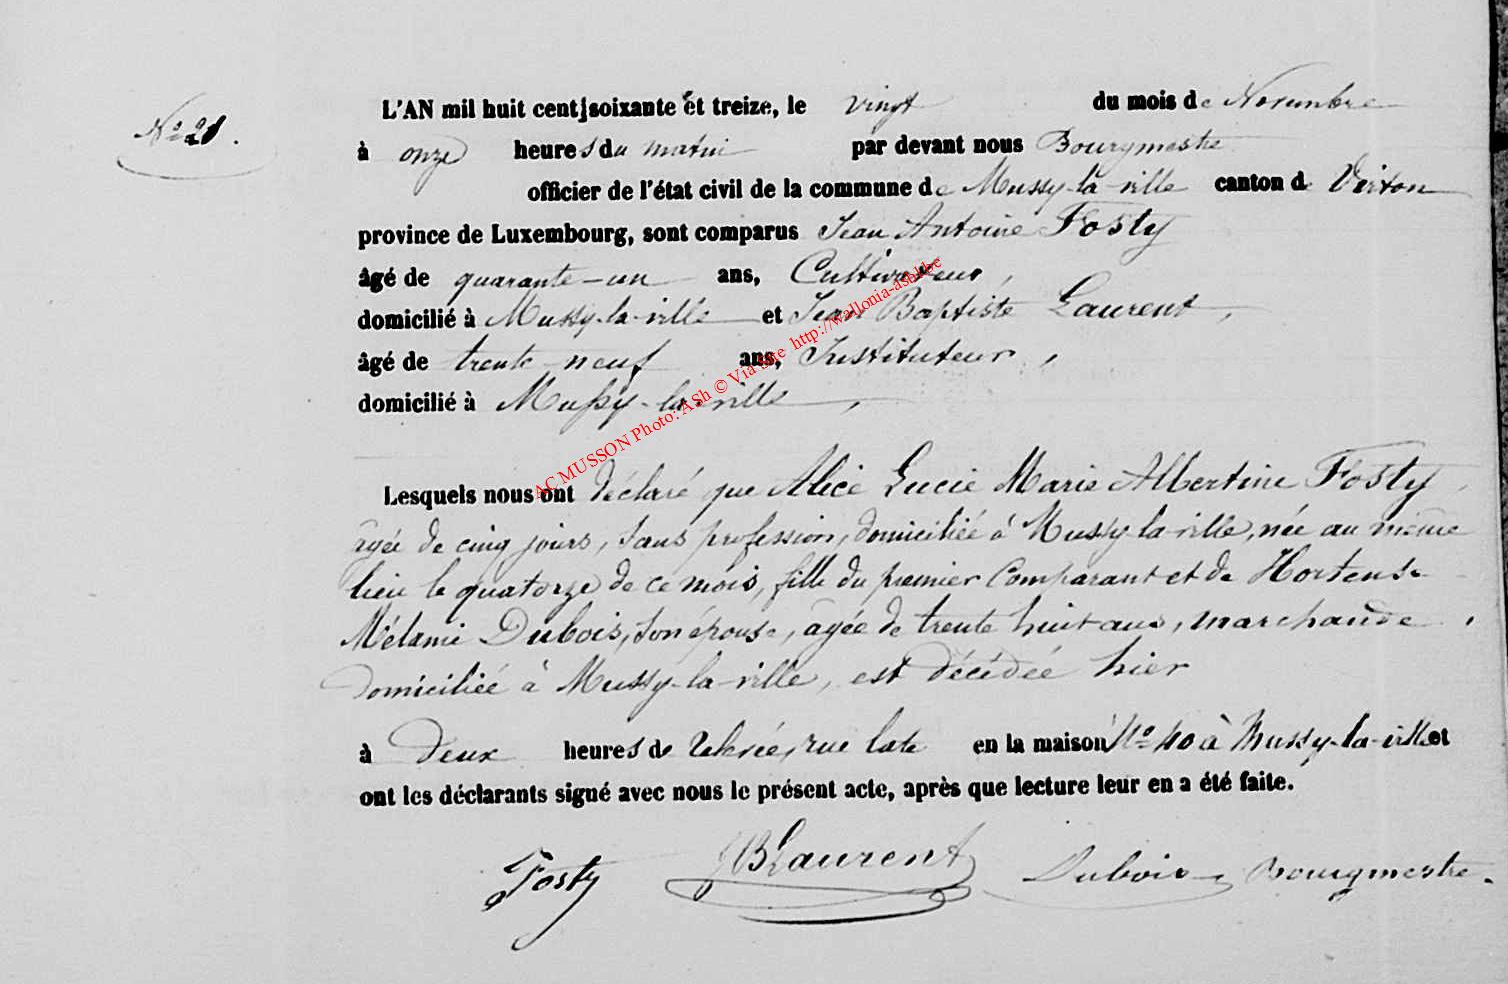 No 21.
L'AN mil huit cent soixante et treize, le vingt du mois de Novembre
à onze heures du matin par devant nous Bourgmestre
officier de l'état civil de la commune de Mussy-la-ville canton de Virton
province de Luxembourg, sont comparus Jean Antoine Fosty
âgé de quarante-un ans, Cultivateur,
domicilié à Mussy-la-ville et Jean Baptiste Laurent,
âgé de trente-neuf ans, Instituteur,
domicilié à Mussy-la-ville,
AC MUSSON Photo: ASh © Via une http://wallonia-asbl.be
Lesquels nous ont déclaré que Alice Lucie Marie Albertine Fosty,
âgée de cinq jours, sans profession, domiciliée à Mussy-la-ville, née au même
lieu le quatorze de ce mois, fille du premier comparant et de Hortense
Mélanie Dubois, son épouse, âgée de trente huit ans, marchande,
domiciliée à Mussy-la-ville, est décédée hier
à deux heures de relevée, rue late en la maison No 40 à Mussy-la-ville et
ont les déclarants signé avec nous le présent acte, après que lecture leur en a été faite.
Fosty JBLaurent Dubois Bourgmestre.